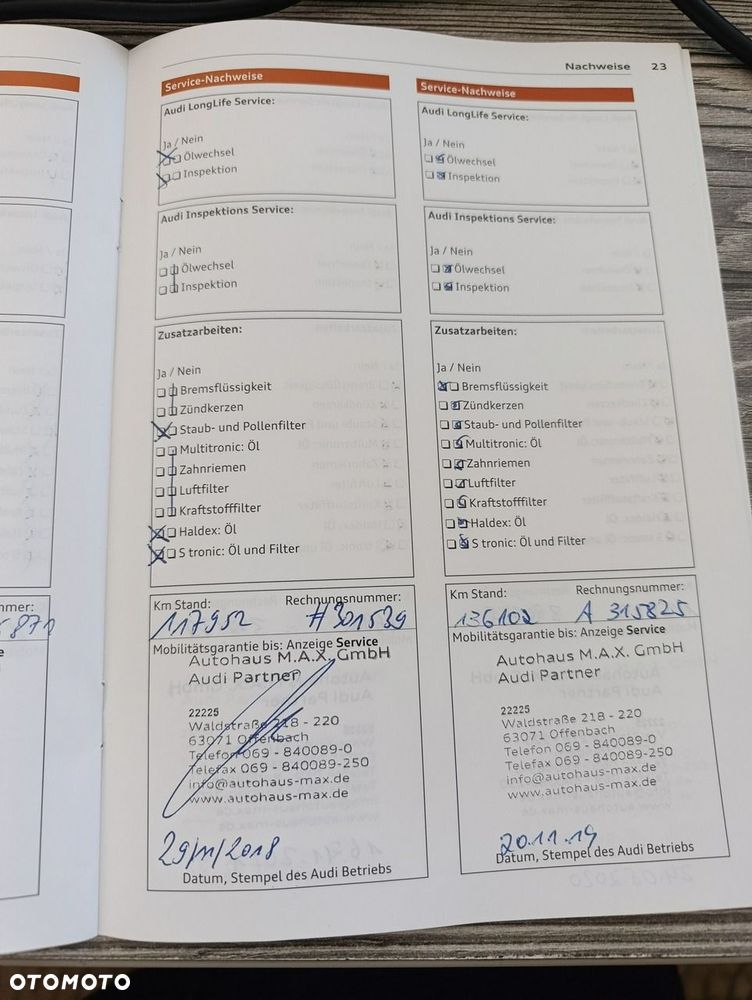 Nachweise 23
Service-Nachweise
Audi LongLife Service:
Ja / Nein
Ölwechsel
Inspektion
Audi Inspektions Service:
Ja / Nein
Ölwechsel
Inspektion
Zusatzarbeiten:
Ja / Nein
Bremsflüssigkeit
Zündkerzen
Staub- und Pollenfilter
Multitronic: Öl
Zahnriemen
Luftfilter
Kraftstofffilter
Haldex: Öl
S tronic: Öl und Filter
Km Stand: Rechnungsnummer:
117952 #301539
Mobilitätsgarantie bis: Anzeige Service
Autohaus M.A.X. GmbH
Audi Partner
22225
Waldstraße 218 - 220
63071 Offenbach
Telefon 069 - 840089-0
Telefax 069 - 840089-250
info@autohaus-max.de
www.autohaus-max.de
29/11/2018
Datum, Stempel des Audi Betriebs
Service-Nachweise
Audi LongLife Service:
Ja / Nein
Ölwechsel
Inspektion
Audi Inspektions Service:
Ja / Nein
Ölwechsel
Inspektion
Zusatzarbeiten:
Ja / Nein
Bremsflüssigkeit
Zündkerzen
Staub- und Pollenfilter
Multitronic: Öl
Zahnriemen
Luftfilter
Kraftstofffilter
Haldex: Öl
S tronic: Öl und Filter
Km Stand: Rechnungsnummer:
136102 A 315825
Mobilitätsgarantie bis: Anzeige Service
Autohaus M.A.X. GmbH
Audi Partner
22225
Waldstraße 218 - 220
63071 Offenbach
Telefon 069 - 840089-0
Telefax 069 - 840089-250
info@autohaus-max.de
www.autohaus-max.de
20.11.19
Datum, Stempel des Audi Betriebs
OTOMOTO